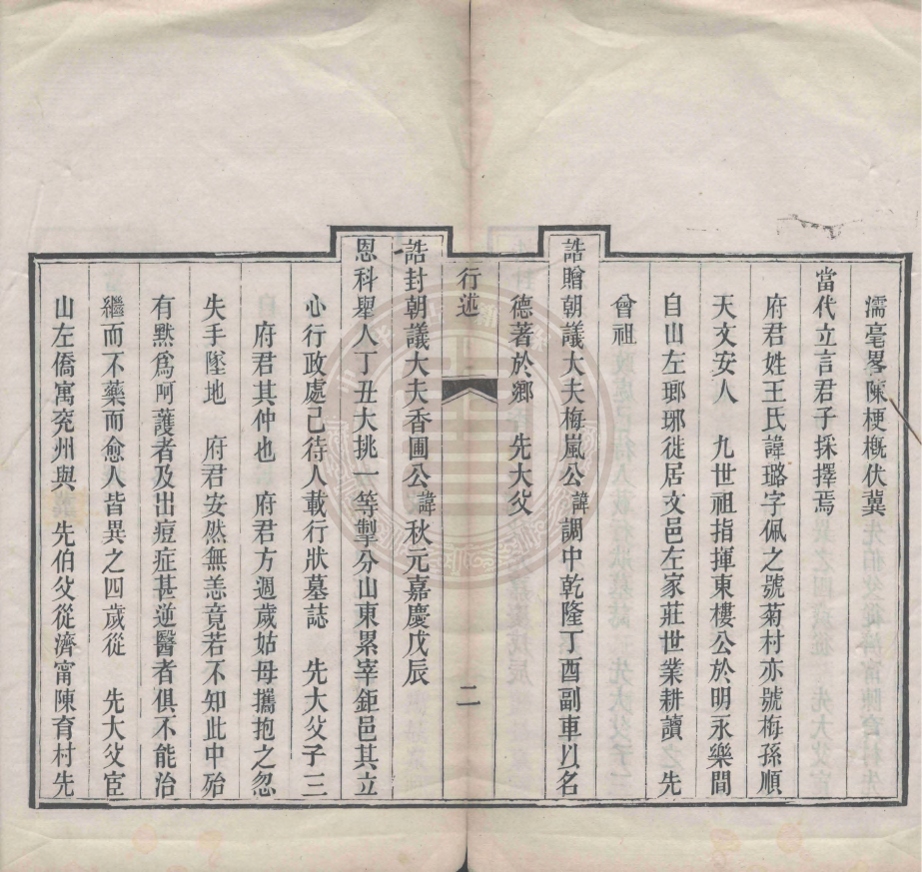 濡毫畧陳梗槪伏冀
當代立言君子採擇焉
府君姓王氏諱璐字佩之號菊村亦號梅孫順
天文安人　九世祖指揮東樓公於明永樂間
自山左瑯琊徙居文邑左家莊世業耕讀　先
曾祖
誥贈朝議大夫梅嵐公諱調中乾隆丁酉副車以名
德著於鄉　先大父
行述　二
誥封朝議大夫香圃公諱秋元嘉慶戊辰
恩科舉人丁丑大挑一等掣分山東累宰鉅邑其立
心行政處己待人載行狀墓誌　先大父子三
府君其仲也　府君方週歲姑母攜抱之忽
失手墜地　府君安然無恙竟若不知此中殆
有黙爲阿護者及出痘症甚逆醫者俱不能治
繼而不藥而愈人皆異之四歲從　先大父宦
山左僑寓兖州與　先伯父從濟甯陳育村先